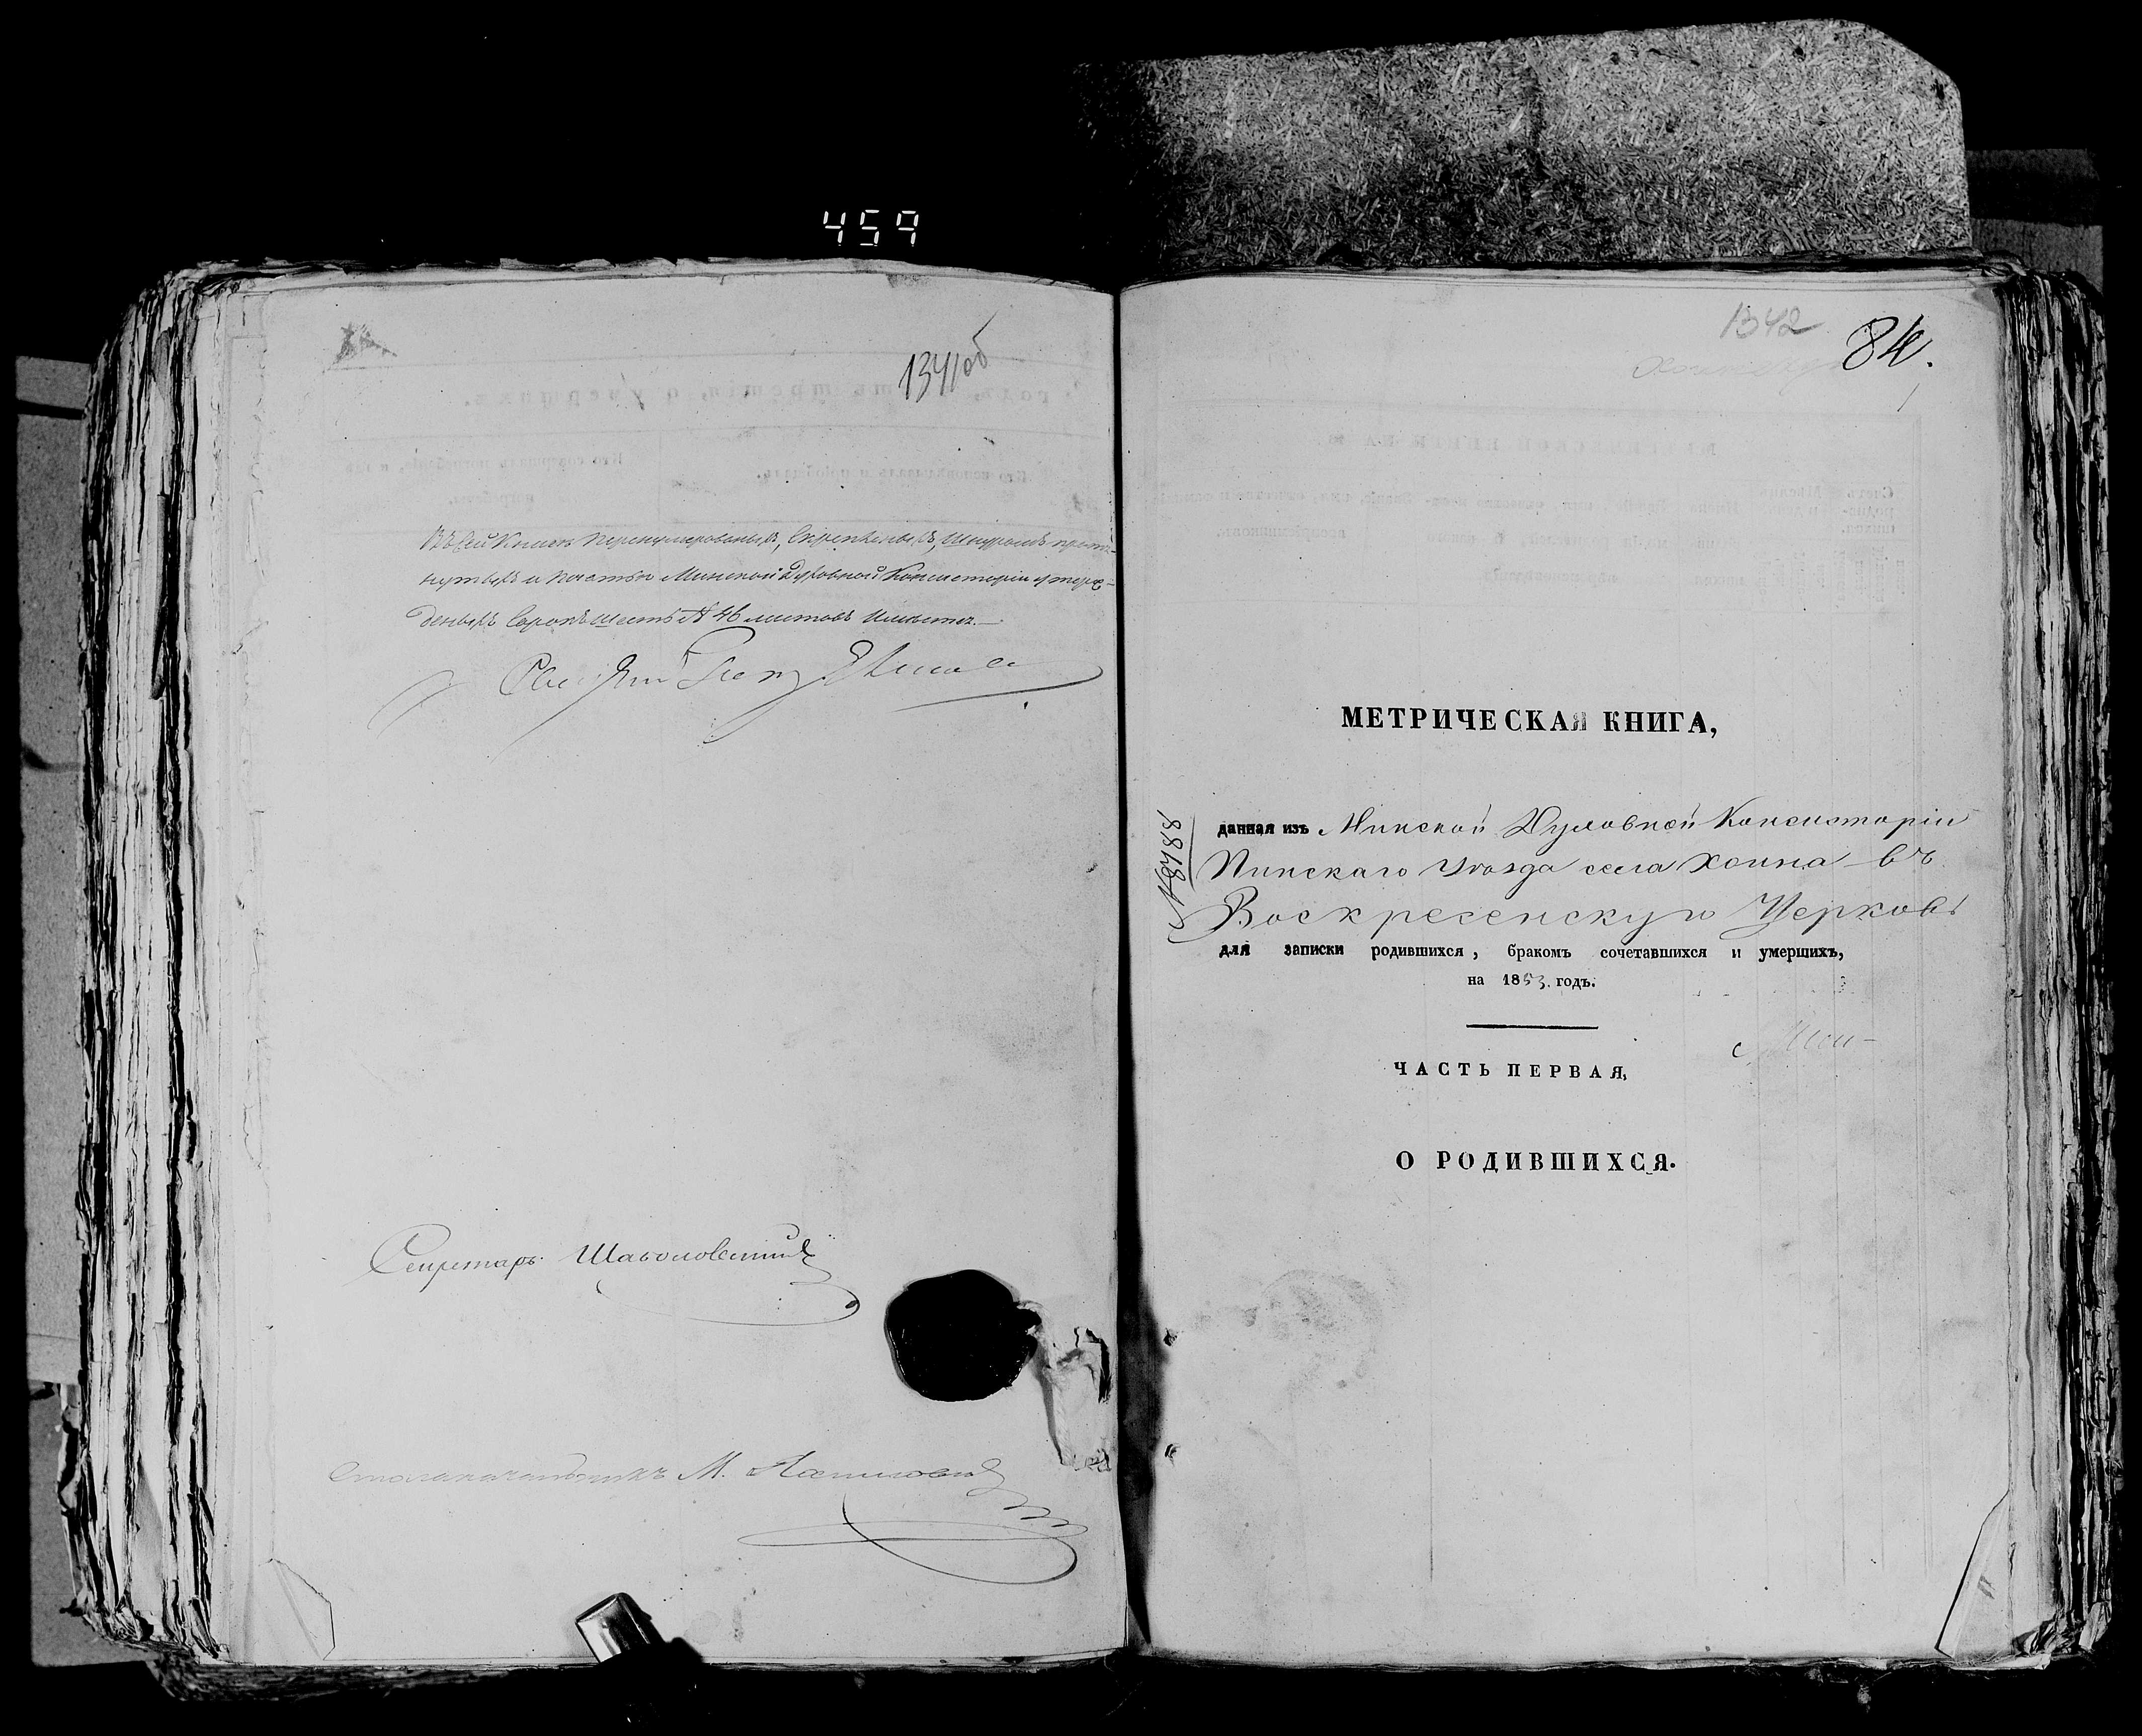 459
1341об
Въ сей Книгѣ перенумерованныхъ, скрепленныхъ, шнуромъ протя-
нутыхъ и печатью Минской Духовной Консисторіи утверж-
денныхъ сорокъ шесть № 46 листовъ имѣется.
Секретарь
Столоначальникъ М.
1342
84.
МЕТРИЧЕСКАЯ КНИГА,
данная изъ Минской Духовной Консисторіи
Пинскаго Уѣзда села Хойна въ
Воскресенскую Церковь
для записки родившихся, бракомъ сочетавшихся и умершихъ,
на 1853. годъ.
Мин-
ЧАСТЬ ПЕРВАЯ,
О РОДИВШИХСЯ.